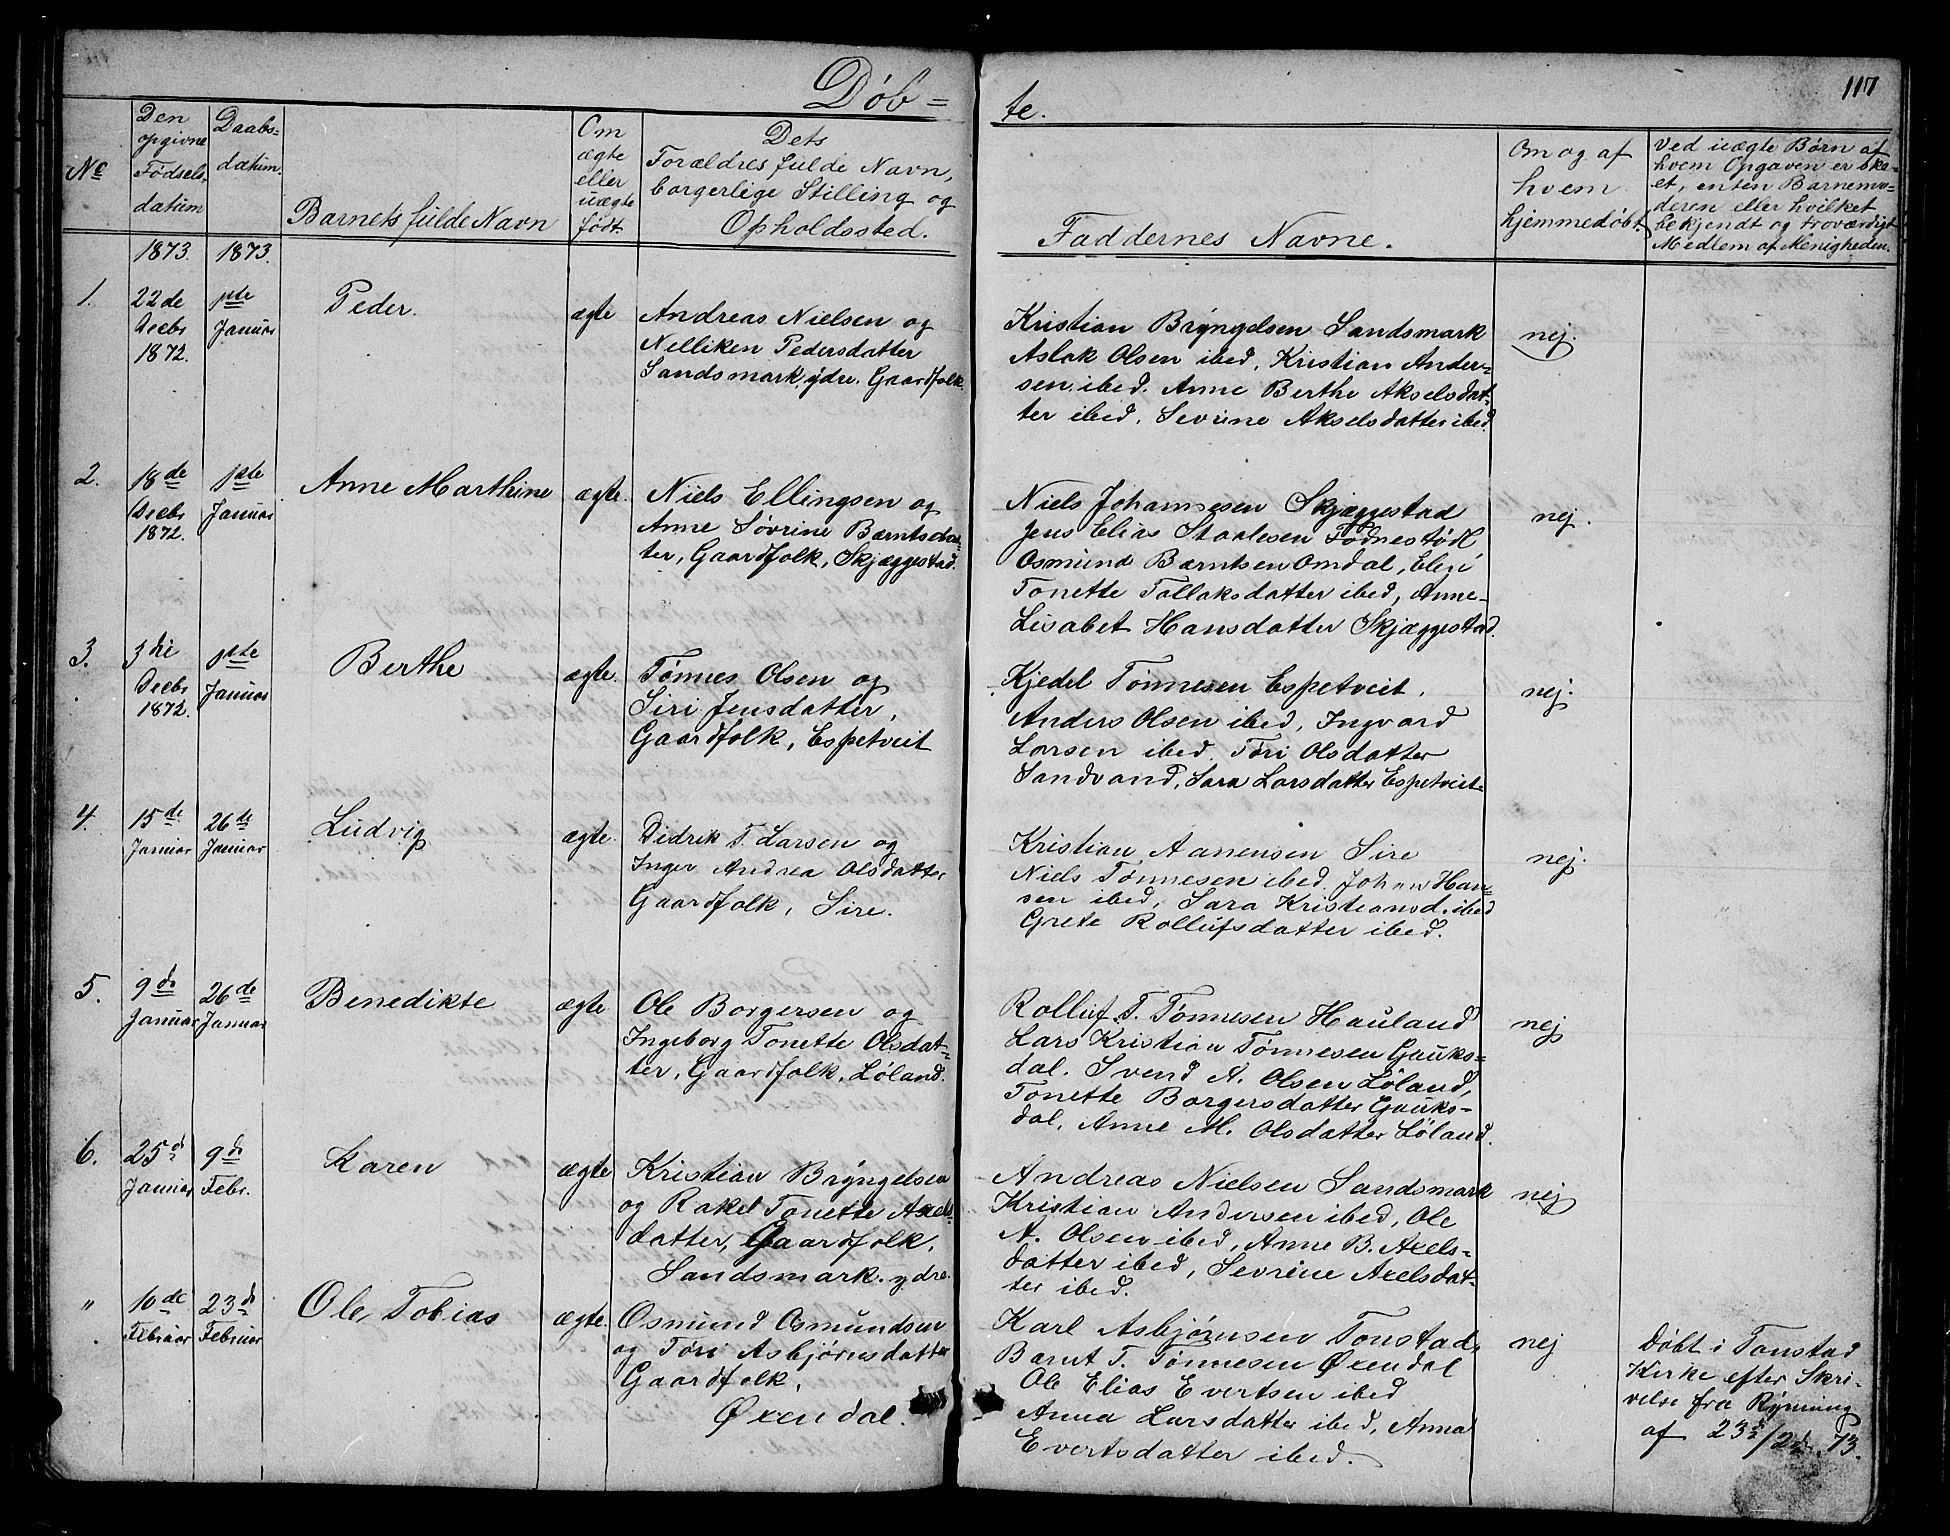 117
Døb=
te.
No
Den opgivne Fødsels datum
Daabs= datum.
Barnets fulde Navn
Om ægte eller uægte født.
Dets Forældres fulde Navn, borgerlige Stilling og Opholdssted.
Faddernes Navne.
Om og af hvem hjemmedøbt.
Ved uægte Børn af hvem Opgaven er ske= et, enten Barnemo= deren eller hvilket bekjendt og troværdigt Medlem af Menigheden.
1873. 1873.
1.
22de Decbr 1872.
1ste Januar
Peder.
ægte
Andreas Nielsen og
Nelliken Pedersdatter
Sandsmark ydre. Gaardfolk.
Kristian Bryngelsen Sandsmark
Aslak Olsen ibed, Kristian Ander=
sen ibed. Anne Berthe Akselsdat=
ter ibed, Sevrine Akselsdatter ibed.
nej.
2.
18de Decbr 1872.
1ste Januar
Anne Marthine
ægte.
Niels Ellingsen og
Anne Sørine Berntsdat=
ter, Gaardfolk, Skjæggestad.
Niels Johannesen Skjæggestad
Jens Elias Staalesen
Osmund Berntsen Omdal, Eli
Tonette Tollaksdatter ibed, Anne
Lisabet Hansdatter Skjæggestad.
nej.
3.
3die Decbr 1872.
1ste Januar
Berthe
ægte.
Tønnes Olsen og
Siri Jensdatter,
Gaardfolk, Espetveit
Kjedel Tønnesen Espetveit,
Anders Olsen ibed, Ingvard
Larsen ibed Tori Olsdatter
Sandvand, Sara Larsdatter Espetveit
nej.
4.
15de Januar
26de Januar
Ludvig
ægte.
Didrik T. Larsen og
Inger Andrea Olsdatter
Gaardfolk, Sire.
Kristian Aanensen Sire
Niels Tønnesen ibed. Johan Han=
sen ibed, Sara Kristiansd. ibed
Grete Rollufsdatter ibed.
nej.
5.
9de Januar
26de Januar
Benedikte
ægte
Ole Borgersen og
Ingeborg Tonette Olsdat=
ter, Gaardfolk, Løland.
Rolluf T. Tønnesen Hauland
Lars Kristian Tønnesen Gauks=
dal. Svend A. Olsen Løland,
Tonette Borgersdatter Gauks=
dal, Anne M. Olsdatter Løland.
nej
6.
25d Januar
9de Febr.
Karen
ægte
Kristian Bryngelsen
og Rakel Tonette Axels
datter, Gaardfolk,
Sandsmark. ydre.
Andreas Nielsen Sandsmark
Kristian Andersen ibed, Ole
A. Olsen ibed, Anne B. Axels=
datter ibed, Sevrine Axelsdat=
ter ibed.
nej
"
10de Februar
23d Februar
Ole Tobias
ægte.
Osmund Osmundsen
og Tøri Asbjørnsdatter
Gaardfolk,
Øxendal.
Karl Asbjørnsen Tonstad,
Bernt T. Tønnesen Øxendal
Ole Elias Evertsen ibed
Anna Larsdatter ibed, Anna
Evertsdatter ibed.
nej
Døbt i Tonstad
Kirke efter Skri=
velse fra Ryning
af 23d/2d 73.